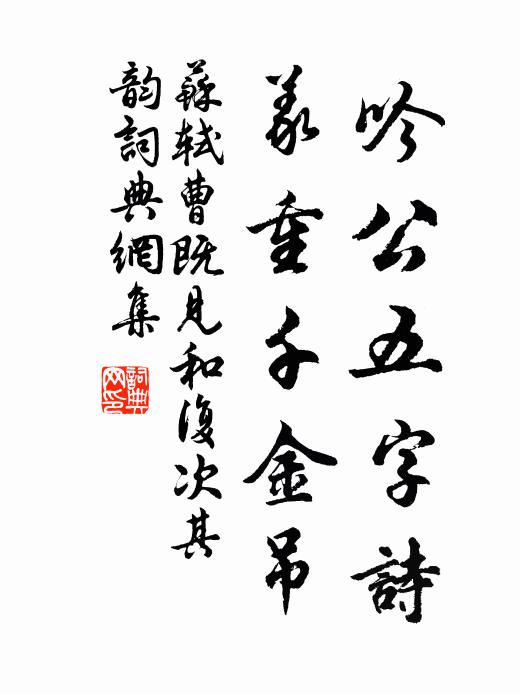 吟公五字詩
義重千金吊
蘇軾曹既見和復次其
韵詞典網集
詞典網印